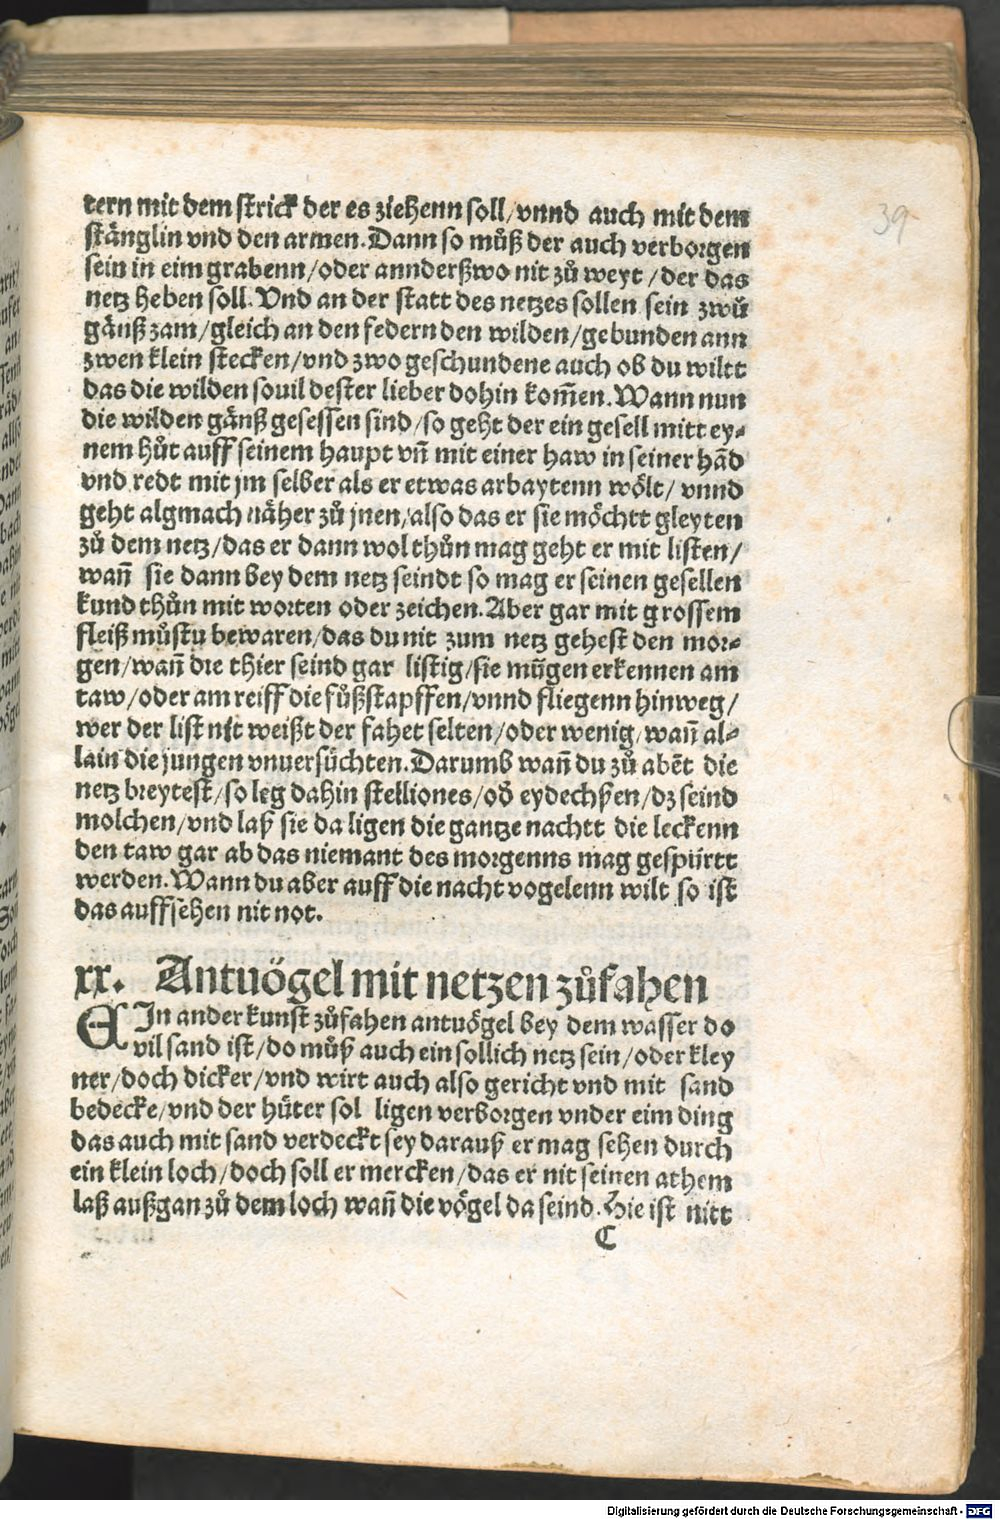 39
tern mit dem strick der es ziehenn soll/vnnd auch mit dem
stänglin vnd den armen. Dann so můß der auch verborgen
sein in eim grabenn/oder annderßwo nit zů weyt/der das
netz heben soll. Vnd an der statt des netzes sollen sein zwů
gäuß zam/gleich an den federn den wilden/gebunden ann
zwen klein stecken/vnd zwo geschundene auch ob du wiltt
das die wilden souil dester lieber dohin kom̃en. Wann nun
die wilden gänß gesessen sind/so geht der ein gesell mitt ey-
nem hůt auff seinem haupt vñ mit einer haw in seiner hãd
vnd redt mit jm selber als er etwas arbaytenn wölt/vnnd
geht algmach näher zů jnen/also das er sie möchtt gleyten
zů dem netz/das er dann wol thůn mag geht er mit listen/
wañ sie dann bey dem netz seindt so mag er seinen gesellen
kund thůn mit worten oder zeichen. Aber gar mit grossem
fleiß můstu bewaren/das du nit zum netz gehest den mor-
gen/wañ die thier seind gar listig/sie mügen erkennen am
taw/oder am reiff die fůßstapffen/vnnd fliegenn hinweg/
wer der list nit weißt der fahet selten/oder wenig/wañ al-
lain die jungen vnuersüchten. Darumb wañ du zů abẽt die
netz breytest/so leg dahin stelliones/od̕ eydechßen/dz seind
molchen/vnd laß sie da ligen die gantze nachtt die leckenn
den taw gar ab das niemant des morgenns mag gespürtt
werden. Wann du aber auff die nacht vogelenn wilt so ist
das auffsehen nit not.
xx. Antuögel mit netzen zůfahen
EIn ander kunst zůfahen antuögel bey dem wasser do
vil sand ist/do můß auch ein sollich netz sein/oder kley
ner/doch dicker/vnd wirt auch also gericht vnd mit sand
bedecke/vnd der hüter sol ligen verborgen vnder eim ding
das auch mit sand verdeckt sey darauß er mag sehen durch
ein klein loch/doch soll er mercken/das er nit seinen athem
laß außgan zů dem loch wañ die vögel da seind. Hie ist nitt
C
Digitalisierung gefördert durch die Deutsche Forschungsgemeinschaft - DFG